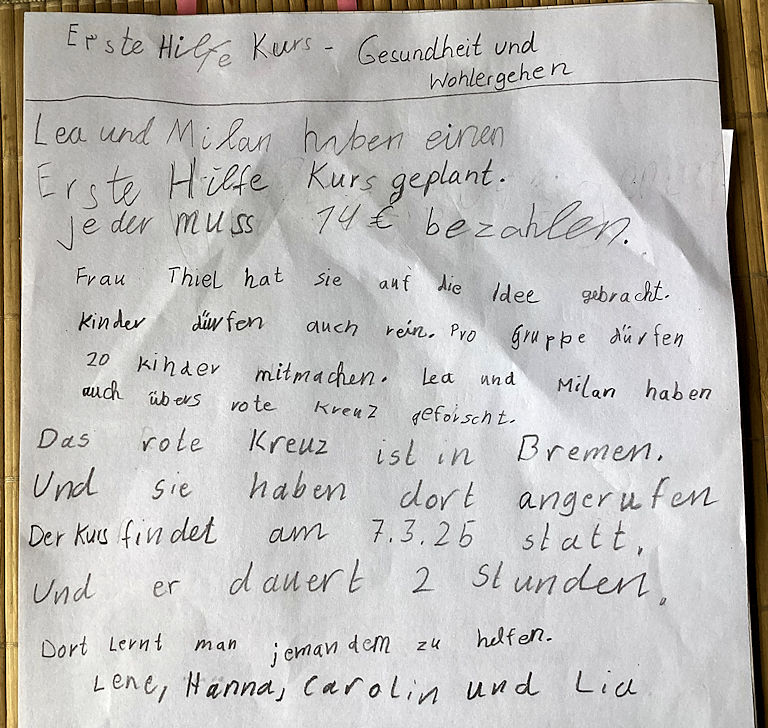 Erste Hilfe Kurs - Gesundheit und
Wohlergehen
Lea und Milan haben einen
Erste Hilfe Kurs geplant.
jeder muss 14€ bezahlen.
Frau Thiel hat sie auf die Idee gebracht.
Kinder dürfen auch rein. Pro Gruppe dürfen
20 kinder mitmachen. Lea und Milan haben
auch übers rote Kreuz geforscht.
Das rote Kreuz ist in Bremen.
Und sie haben dort angerufen
Der Kurs findet am 7.3.26 statt.
Und er dauert 2 Stunden.
Dort Lernt man jemandem zu helfen.
Lene, Hanna, Carolin und Lia